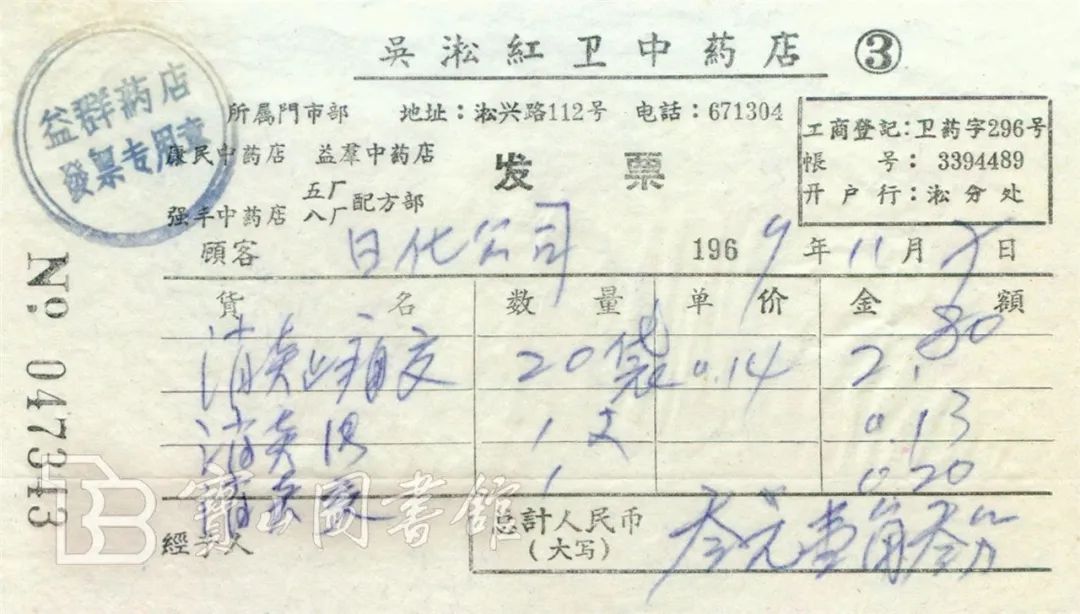 吳淞紅卫中药店 ③
益群药店
發票专用章
所属門市部 地址：淞兴路112号 电話：671304
康民中药店 益羣中药店
强丰中药店 五厂 八厂 配方部
发票
工商登記：卫药字296号
帳号：3394489
开户行：淞分处
No. 047343
顧客 日化公司 1969年11月 日
貨名 数量 单价 金額
消炎止痛 20袋 0.14 2.80
消炎 1支 0.13
消炎 1 0.20
經手人
总計人民币（大写） 叁元壹角叁分
寶山圖書館